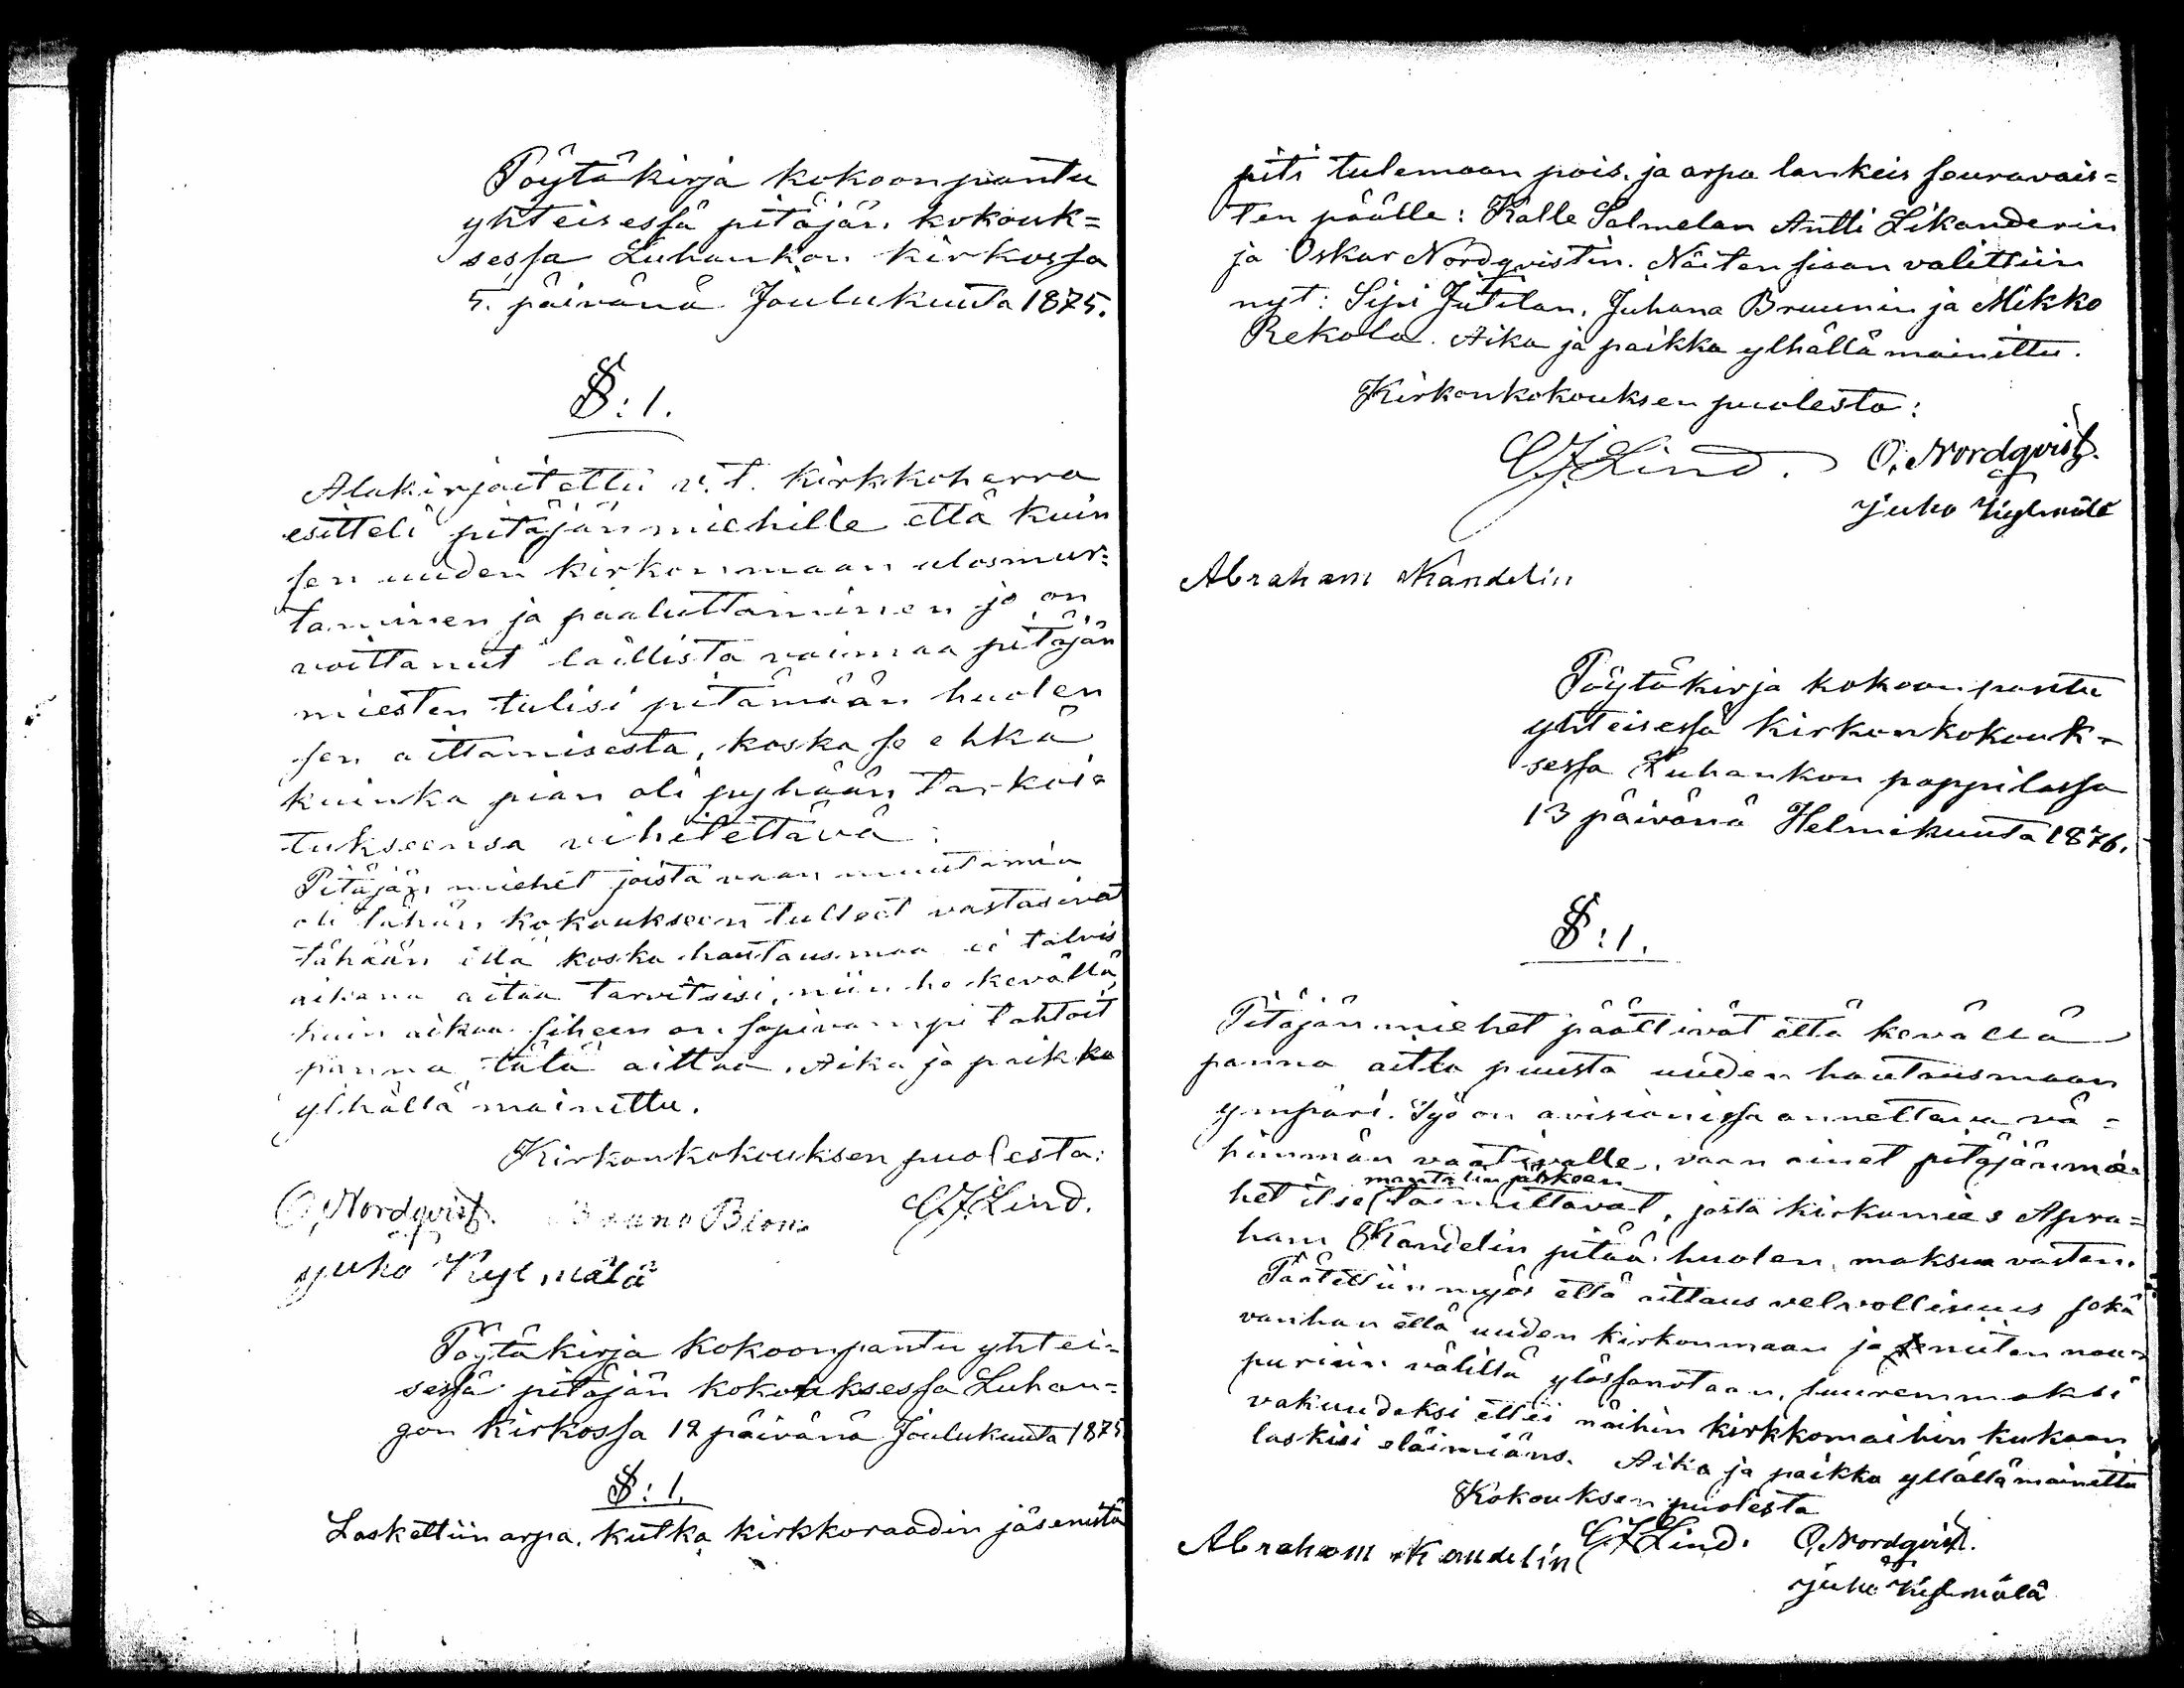 Pöytäkirja kokoonpantu
yhteisessä pitäjän kokouk=
sessa Luhankon kirkossa
5. päivänä Joulukuuta 1875.
§: 1.
Alakirjoitettu v. t. kirkkoherra
esitteli pitäjänmiehille että kuin
sen uuden kirkonmaan ulosmur=
taminen ja paaluttaminen jo on
voittanut laillista voimaa pitäjän
miesten tulisi pitämään huolen
sen aittamisesta, koska se ehkä
kuinka pian oli pyhään tarkoi=
tukseensa vihitettävä.
Pitäjän miehet joista vaan muutamia
oli tähän kokoukseen tulleet vastasivat
tähään että koska hautausmaa ei talvis
aikana aitaa tarvitsisi, niin he kevällä,
kuin aikaa siheen on sopivampi tahtoit
panna tätä aittaa. Aika ja paikka
ylhällä mainittu.
Kirkonkokouksen puolesta:
O, Nordqvist. Blom C. J. Lind.
Juho Kylmälä
Pöytäkirja kokoonpantu yhtei=
sessä pitäjän kokouksessa Luhan=
gon kirkossa 12 päivänä Joulukuuta 1875
§: 1.
Laskettiin arpa, kutka kirkkoraadin jäsenistä
piti tulemaan pois, ja arpa lankeis seuravais=
ten päälle: Kalle Salmelan Antti Likanderin
ja Oskar Nordqvistin. Näiten siaan valittiin
nyt: Sipi Jutilan, Juhana Bruunin ja Mikko
Rekola. Aika ja paikka ylhällä mainittu.
Kirkonkokouksen puolesta:
C. J. Lind. O, Nordqvist.
Juho Kylmälä
Abraham Kandelin
Pöytäkirja kokoonpantu
yhteisessä kirkonkokouk=
sessa Luhankon pappilassa
13 päivänä Helmikuuta 1876.
§: 1.
Pitäjänmiehet päättivät että kevällä
panna aitta puusta uuden hautausmaan
ympäri. Työ on avisionissa annettava vä=
himmän vaativalle, vaan ainet pitäjänmie=
mantalin jälkeen
het itse toimittavat, josta kirkomies Apra=
ham Kandelin pitää huolen maksua vasten.
Päätettiin myös että aittaus velvollisuus sekä
vanhan että uuden kirkonmaan ja niiten naa=
puriein välillä ylössanotaan, suuremmaksi
vakuudeksi ettei näihin kirkkomaihin kukaan
laskisi eläimiäns. Aika ja paikka yllällämainittu
Kokouksen puolesta
Abraham Kandelin C. J. Lind. O, Nordqvist.
Juho Kylmälä